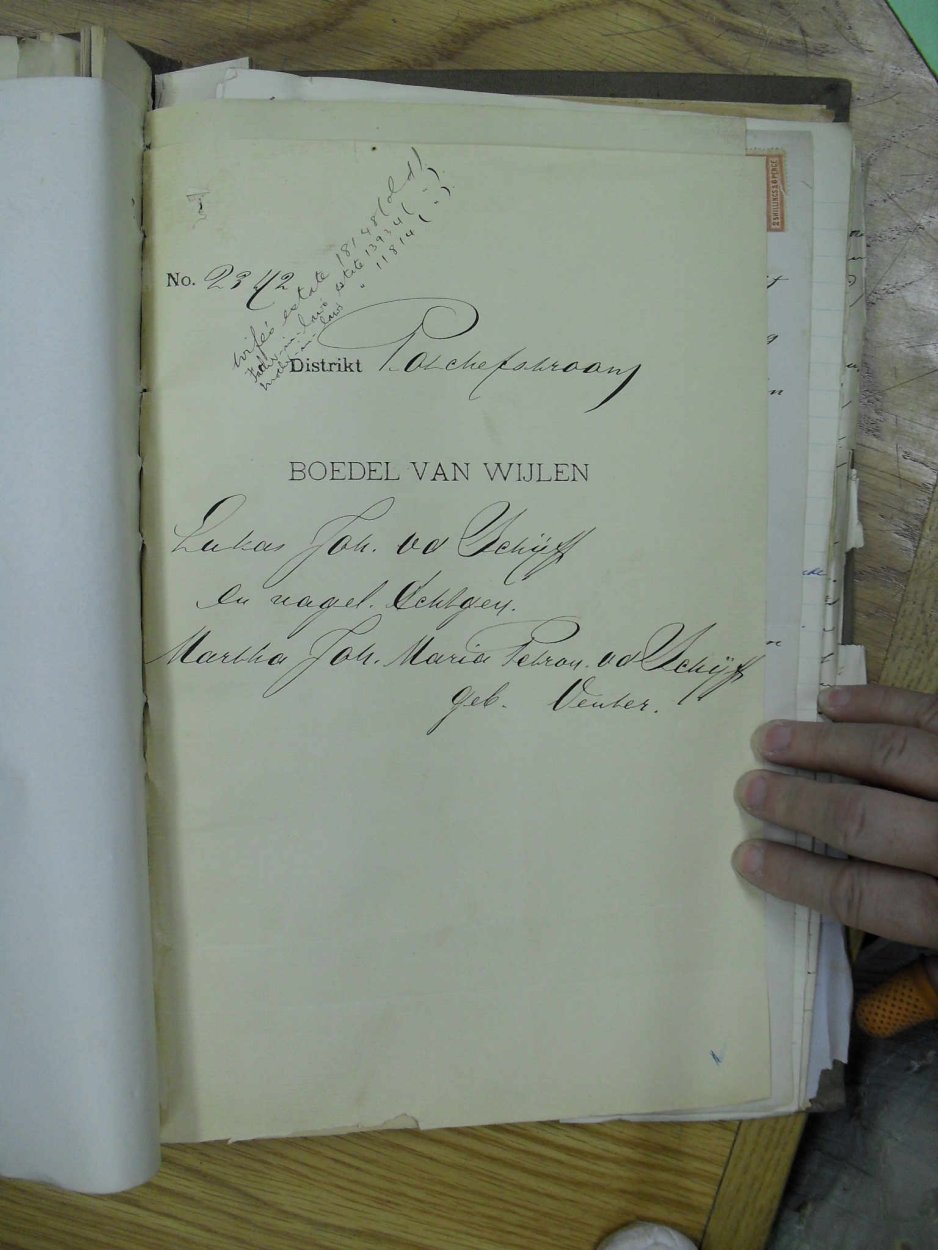 2 SHILLINGS & 6 PENCE
No. 2342
wife's estate 18148 (old)
Father-in-law's estate 13934 ( " )
Mother-in-law's " 11814 ( " )
Distrikt Potchefstroom
BOEDEL VAN WIJLEN
Lukas Joh. vd Schÿff
en nagel. Echtgen.
Martha Joh. Maria Petron. vd Schÿff
geb. Venter.